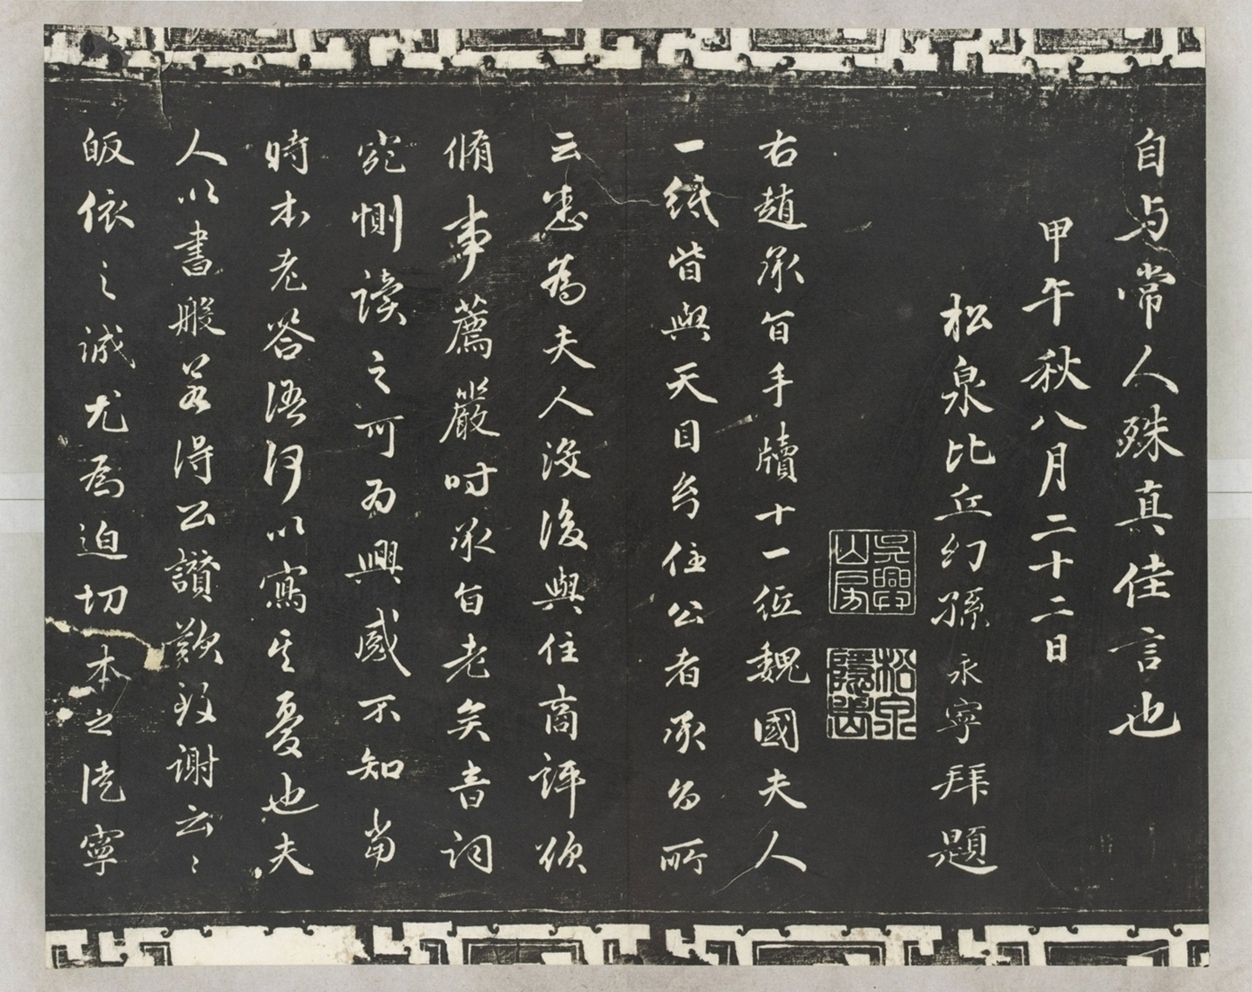 自与常人殊真佳言也
甲午秋八月二十二日
松泉比丘幻孫永寧拜題
吳興山房
松泉隱岩
右趙承旨手牘十一紙魏國夫人
一紙皆與天目幻住公者承旨所
云悉為夫人沒後與住商評欲
脩事薦嚴時承旨老矣音詞
悽惻讀之可為興感不知當
時本老答語何以寫其憂也夫
人以書般若得公讚歎致謝云云
皈依之誠尤為迫切本之徒寧